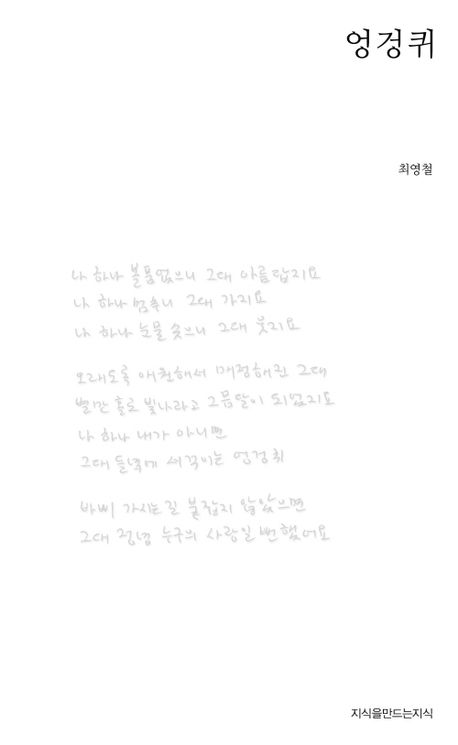 엉겅퀴
최영철
나 하나 볼품없으니 그대 아름답지요
나 하나 멈추니 그대 가지요
나 하나 눈물 솟으니 그대 웃지요
오래도록 애천해서 매정해진 그대
빨간 홀로 빛나라고 그믐달이 되었지요
나 하나 내가 아니면
그대 들녘에 서걱이는 엉겅퀴
바삐 가시는 길 붙잡지 않았으면
그대 정녕 누구의 사랑일 뻔했어요
지식을만드는지식